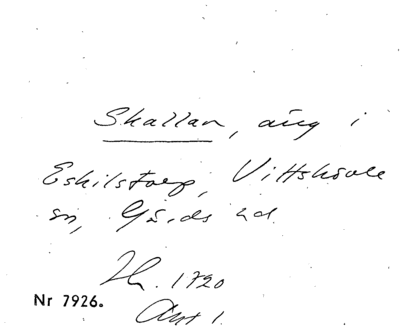 Skallan, äng i
Eskilstorp, Vittskövle
sn, Gärds hd
Lh. 1720
Akt 1.
Nr 7926.